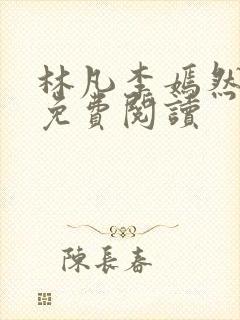 林凡李嫣然
免費閱讀
陳長春